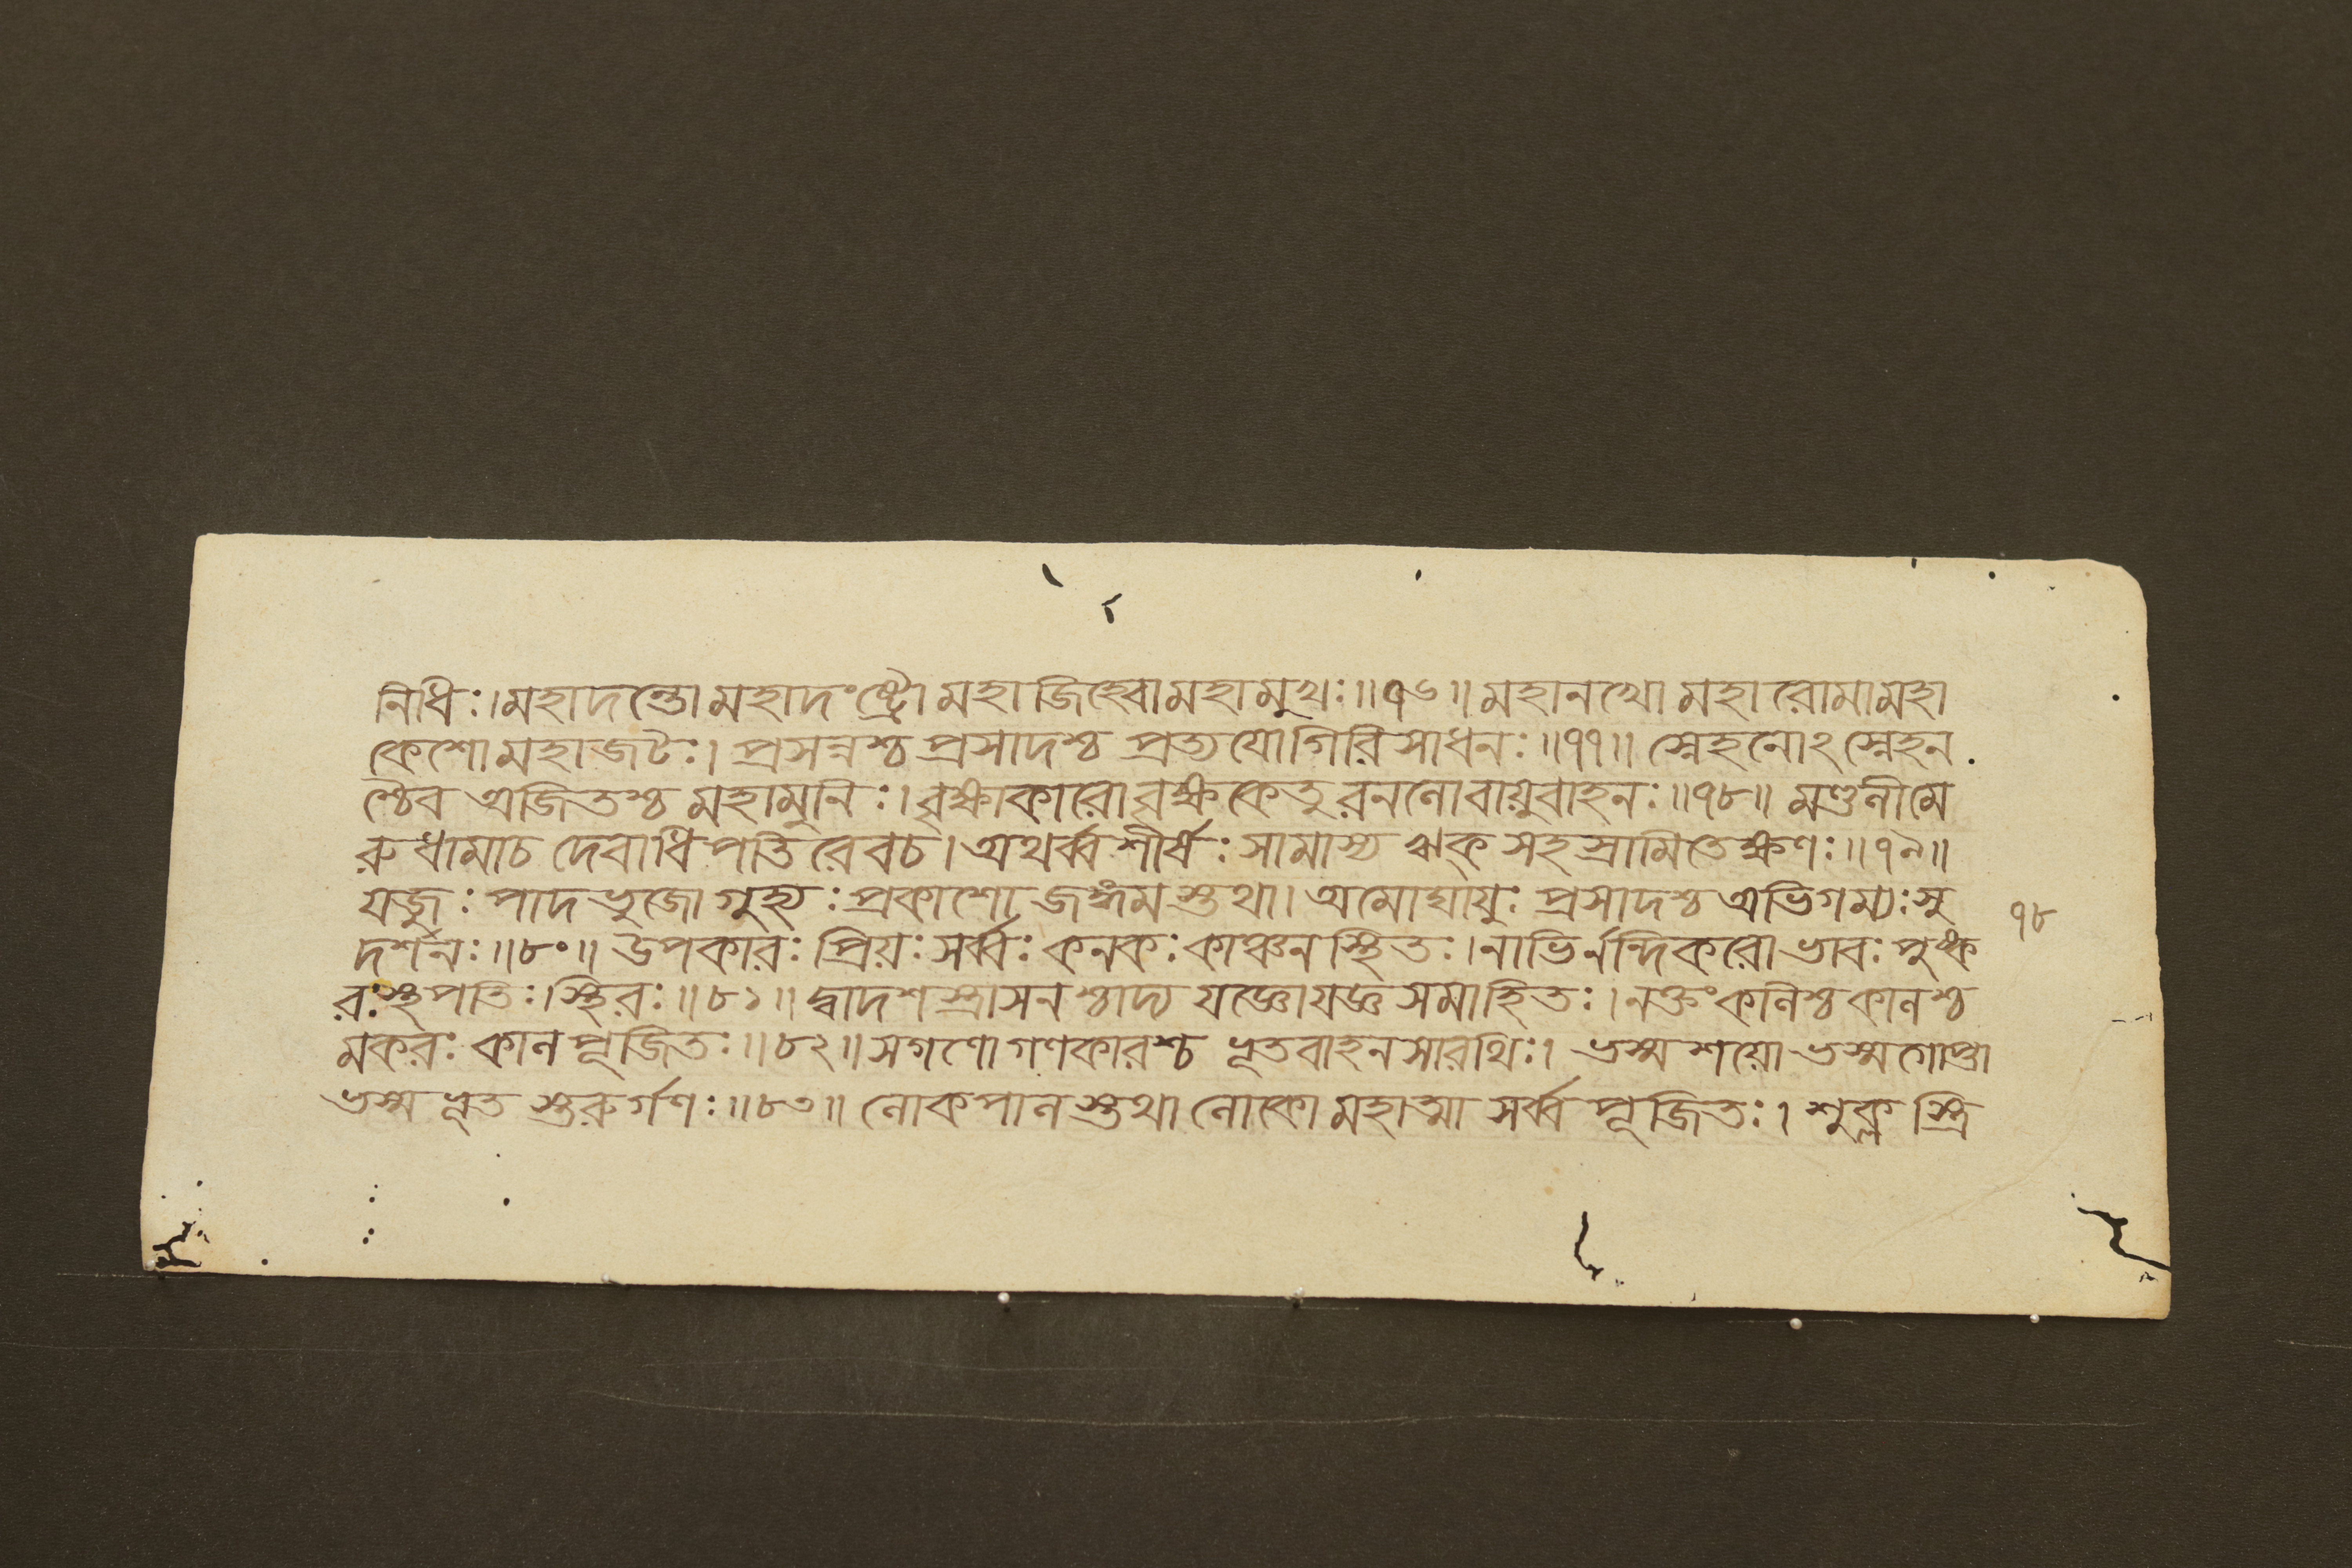 নিধিঃ।মহাদন্তো মহাদংষ্ট্রো মহাজিহ্বোমহামুখঃ॥৭৬॥ মহানখো মহারোমামহা
কেশোমহাজটঃ। প্রসন্নশ্চ প্রসাদশ্চ প্রত্যয়োগিরিসাধনঃ॥৭৭॥ স্নেহনোঽস্নেহন
শ্চৈব অজিতশ্চ মহামুনিঃ।বৃক্ষাকারোবৃক্ষকেতুরনলোবায়ুবাহনঃ॥৭৮॥ মণ্ডলীমে
রুধামাচ দেবাধিপতিরেবচ।অথর্ব্বশীর্ষঃসামাস্য ঋক্সহস্রামিতেক্ষণঃ॥৭৯॥
যজুঃপাদভুজো গুহ্যঃপ্রকাশো জঙ্গমস্তথা। অমোঘায়ুঃ প্রসাদশ্চ অভিগম্যঃসু
৭৮
দর্শনঃ॥৮০॥ উপকারঃ প্রিয়ঃ সর্ব্বঃ কনকঃকাঞ্চনস্থিতঃ।নাভির্নন্দিকরোভাবঃ পুষ্ক
রঃস্থপতিঃ।স্থিরঃ॥৮১॥ দ্বাদশস্ত্রাসনশ্চাদ্য যজ্ঞোযজ্ঞসমাহিতঃ।নক্তংকলিশ্চকালশ্চ
মকরঃ কালপূজিতঃ॥৮২॥সগণোগণকারশ্চ ভূতবাহনসারথিঃ। ভস্মশয়ো ভস্মগোপ্তা
ভস্মভূতস্তরুর্গণঃ॥৮৩॥ লোকপালস্তথালোকো মহাত্মা সর্ব্বপূজিতঃ। শুক্লস্ত্রি